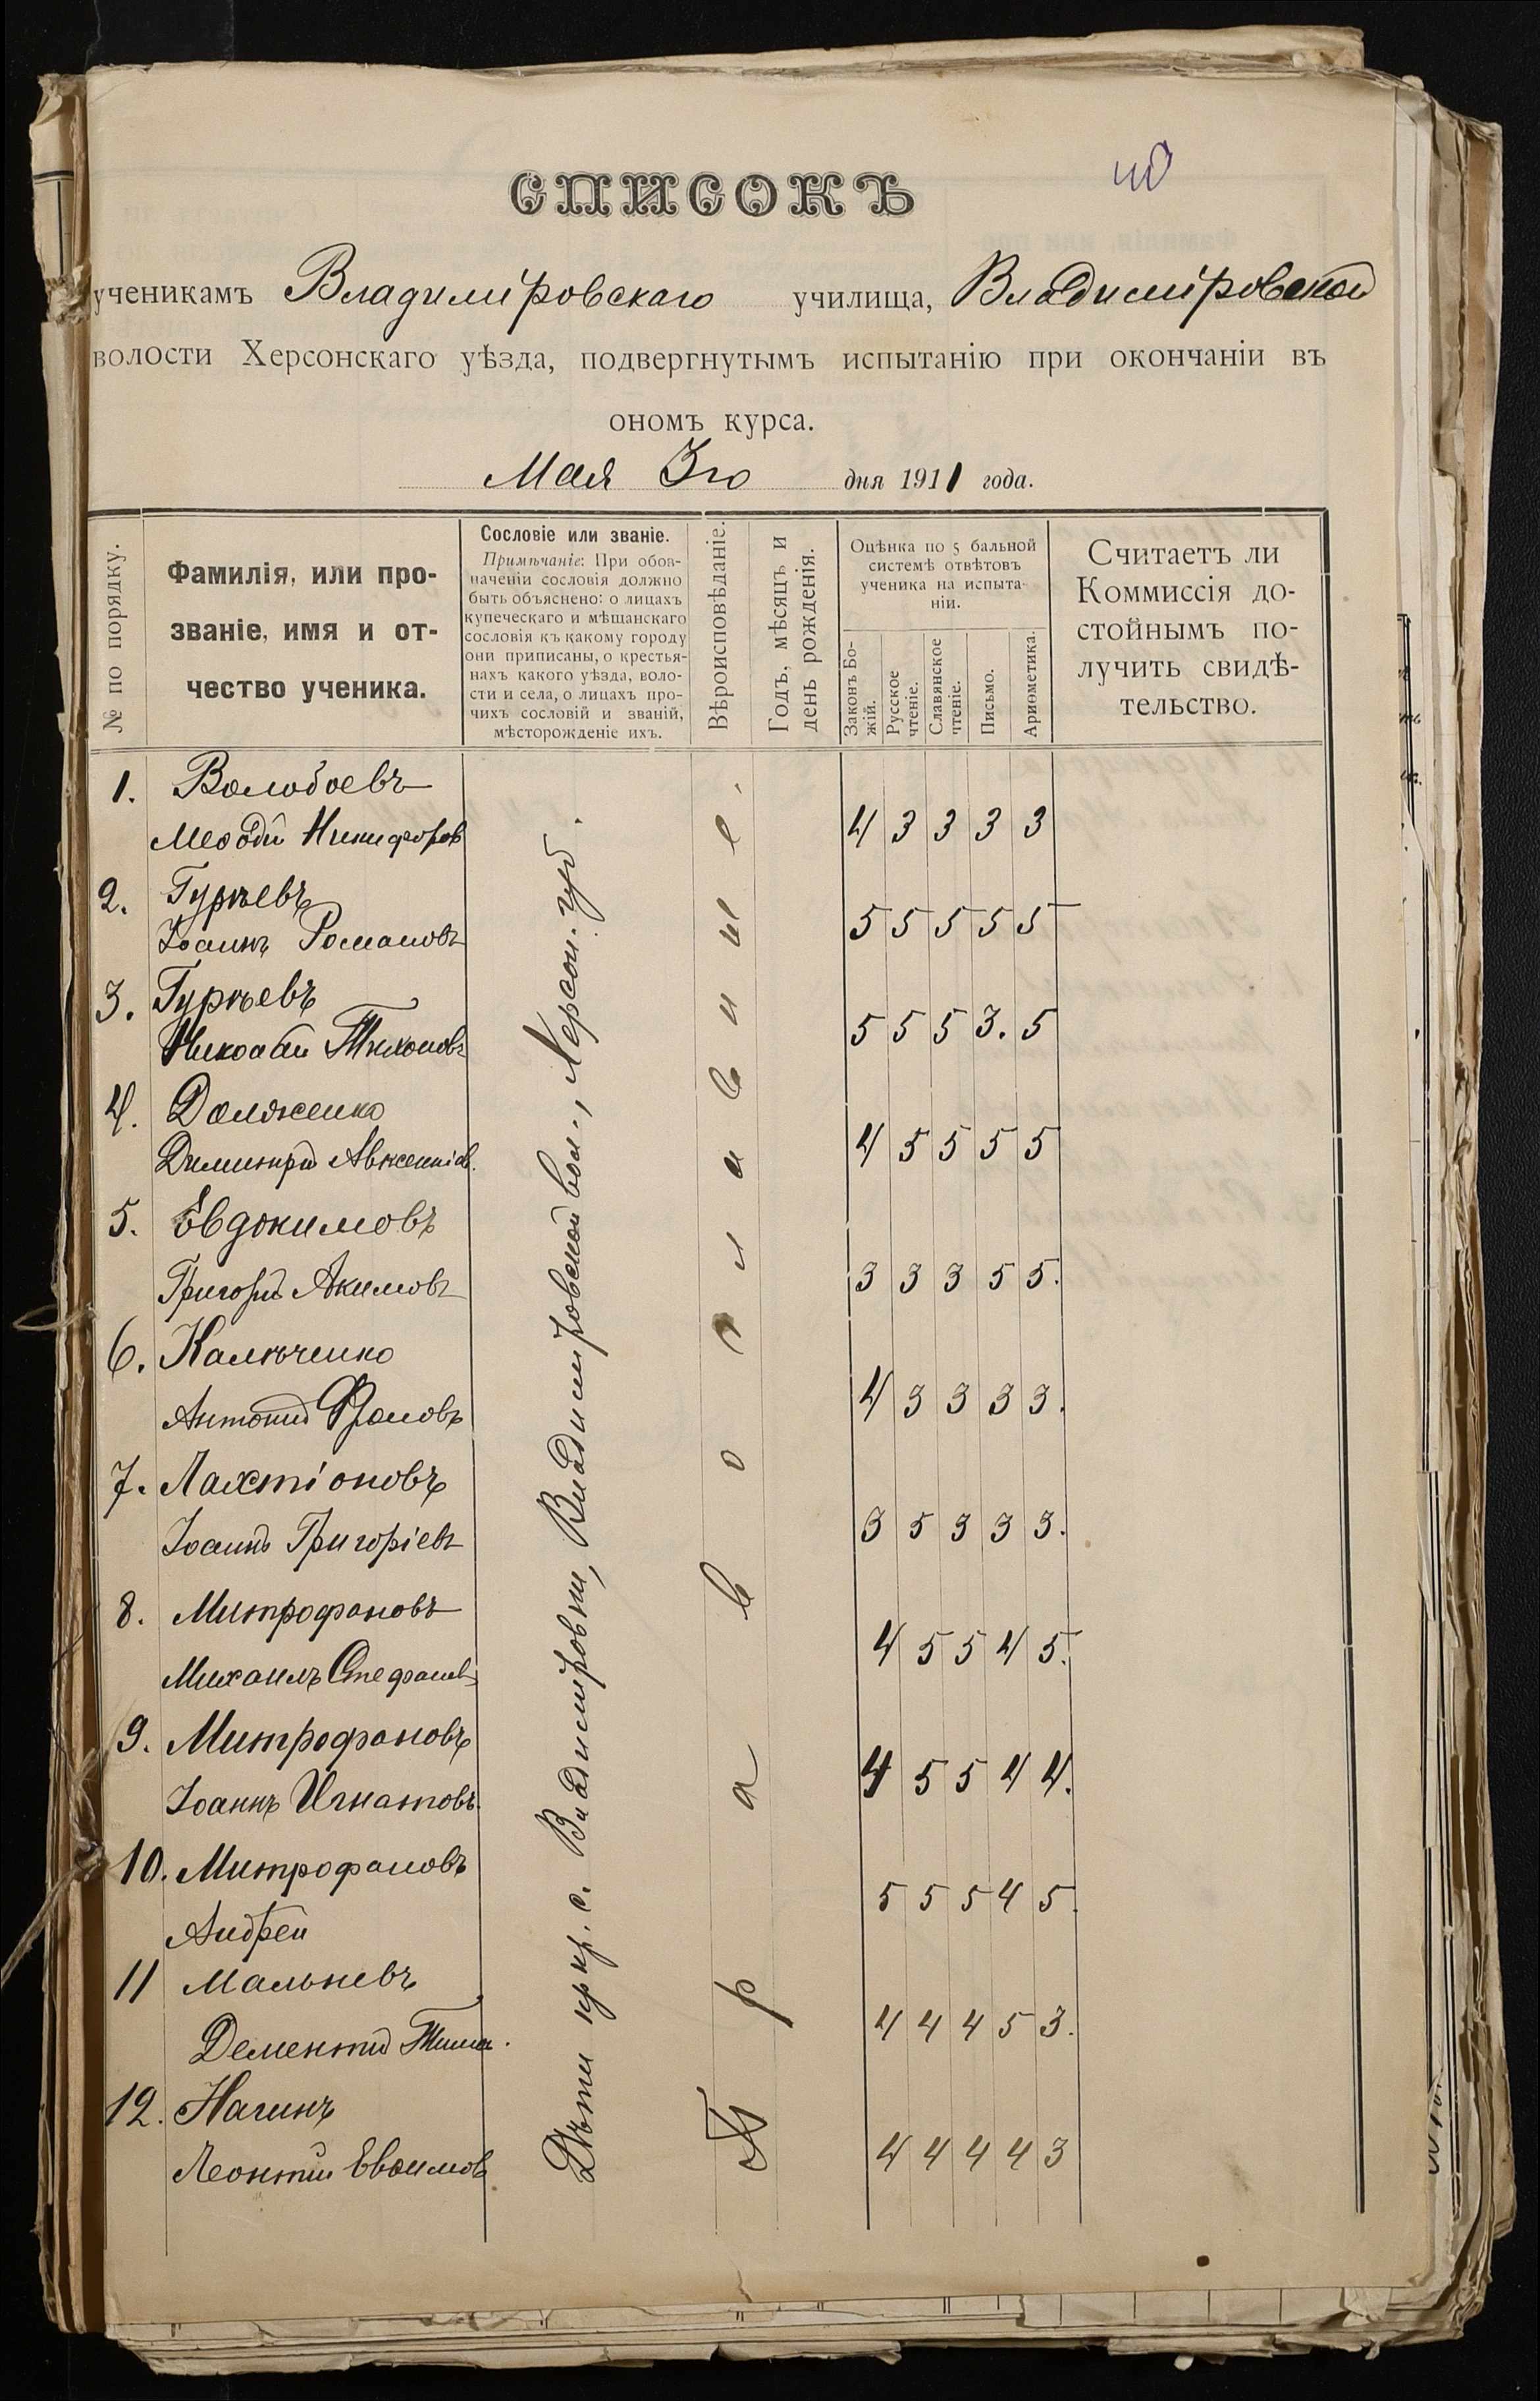 СПИСОКЪ
40
ученикамъ Владимировскаго училища, Владимировской
волости Херсонскаго уѣзда, подвергнутымъ испытанію при окончаніи въ
ономъ курса.
Мая 3го дня 1911 года.
№ по порядку.
Фамилія, или про-
званіе, имя и от-
чество ученика.
Сословіе или званіе.
Примѣчаніе: При обоз-
наченіи сословія должно
быть объяснено: о лицахъ
купеческаго и мѣщанскаго
сословія къ какому городу
они приписаны, о крестья-
нахъ какого уѣзда, воло-
сти и села, о лицахъ про-
чихъ сословій и званій,
мѣсторожденіе ихъ.
Вѣроисповѣданіе.
Годъ, мѣсяцъ и
день рожденія.
Оцѣнка по 5 бальной
системѣ отвѣтовъ
ученика на испыта-
ніи.
Законъ Бо-
жій.
Русское
чтеніе.
Славянское
чтеніе.
Письмо.
Ариѳметика.
Считаетъ ли
Коммиссія до-
стойнымъ по-
лучить свидѣ-
тельство.
1. Волобоевъ
Меѳодій Никифоров 4 3 3 3 3
2. Гурьевъ
Іоаннъ Романовъ 5 5 5 5 5
3. Гурьевъ
Николай Тихоновъ 5 5 5 3. 5
4. Долженко
Димитрій Авксентіев. 4 5 5 5 5
5. Евдокимовъ
Григорій Акимовъ 3 3 3 5 5.
6. Калюченко
Антоній 4 3 3 3 3.
7. Лахтіоновъ
Іоаннъ Григоріевъ 3 5 3 3 3.
8. Митрофановъ
Михаилъ Стефановъ 4 5 5 4 5.
9. Митрофановъ
Іоаннъ Игнатовъ. 4 5 5 4 4.
10. Митрофановъ
Андрей 5 5 5 4 5.
11 Мальневъ
Дементій 4 4 4 5 3.
12. Нагинъ
Леонтій Евѳимов 4 4 4 4 3
Дѣти кр. с. Владимировки, Владимировской вол., Херсон. губ.
Православные.